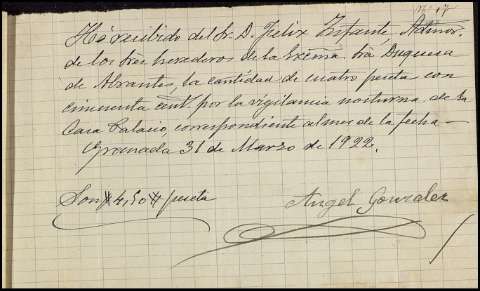 Nº 17
He recibido del Sr. D. Felix Infante, Admor.
de los Sres herederos de la Exема. Sra Duquesa
de Abrantes, la cantidad de cuatro pesetas con
cincuenta cent. por la vigilancia nocturna, de la
Casa Palacio, correspondiente al mes de la fecha—
Granada 31 de Marzo de 1922.
Son #4,50# pesetas
Angel Gonzalez